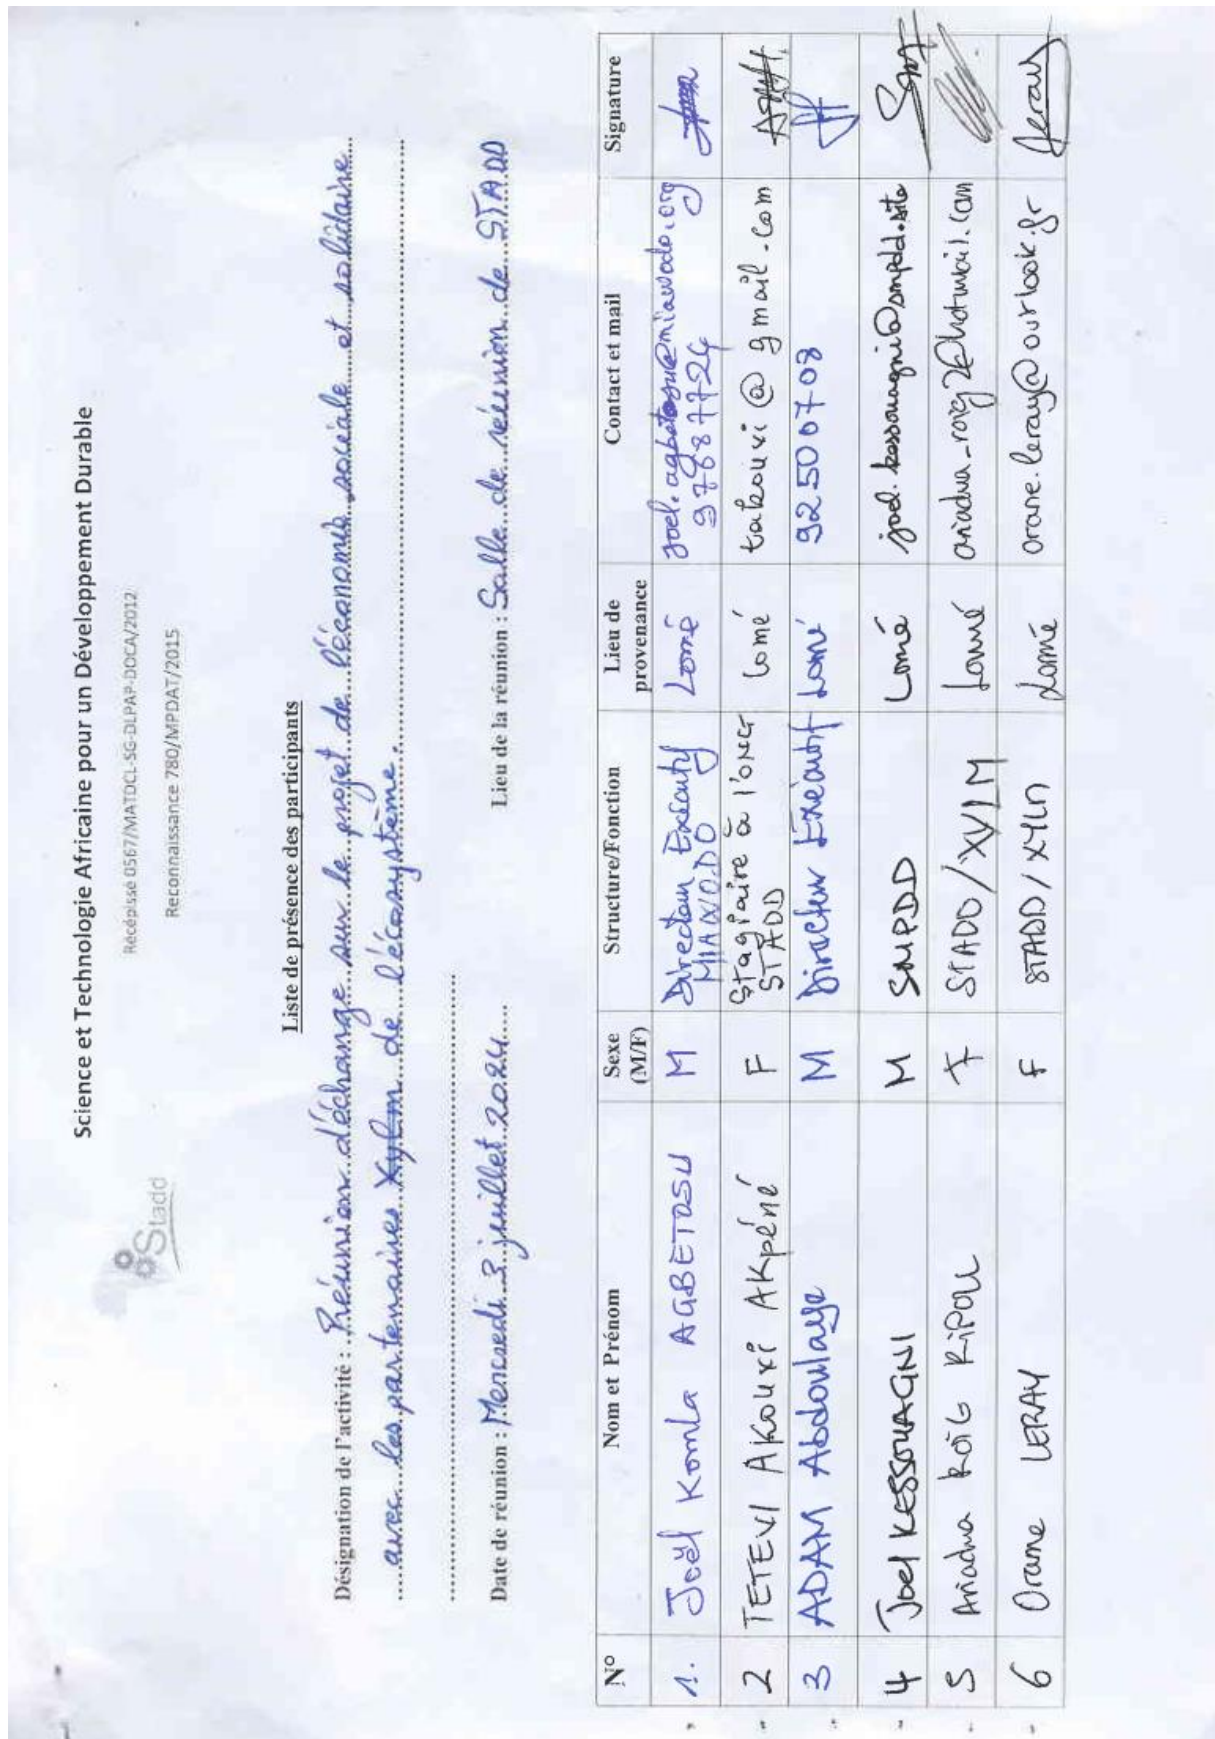 Stadd
Science et Technologie Africaine pour un Développement Durable
Récépissé 0567/MATDCL-SG-DLPAP-DOCA/2012
Reconnaissance 780/MPDAT/2015
Liste de présence des participants
Désignation de l'activité : Réunion d'échange sur le projet de l'économie sociale et solidaire
avec les partenaires Xylm de l'écosystème.
Date de réunion : Mercredi 3 juillet 2024 Lieu de la réunion : Salle de réunion de STADD
N° Nom et Prénom Sexe (M/F) Structure/Fonction Lieu de provenance Contact et mail Signature
1. Joël Komla AGBETOSU M Directeur Exécutif MIAWODO Lomé joel.agbetosu@miawodo.org 97887724
2 TETEVI AKouvi AKpéné F Stagiaire à l'ONG STADD Lomé takouvi@gmail.com
3 ADAM Abdoulaye M Directeur Exécutif Lomé 92500708
4 Joel KESSOUAGNI M SMPDD Lomé joel.kossouagni@smpdd.site
5 Ariadna ROIG RIPOLL F STADD/XYLM Lomé
6 Orane LERAY F STADD/XYLM Lomé orane.leray@outlook.fr Leray